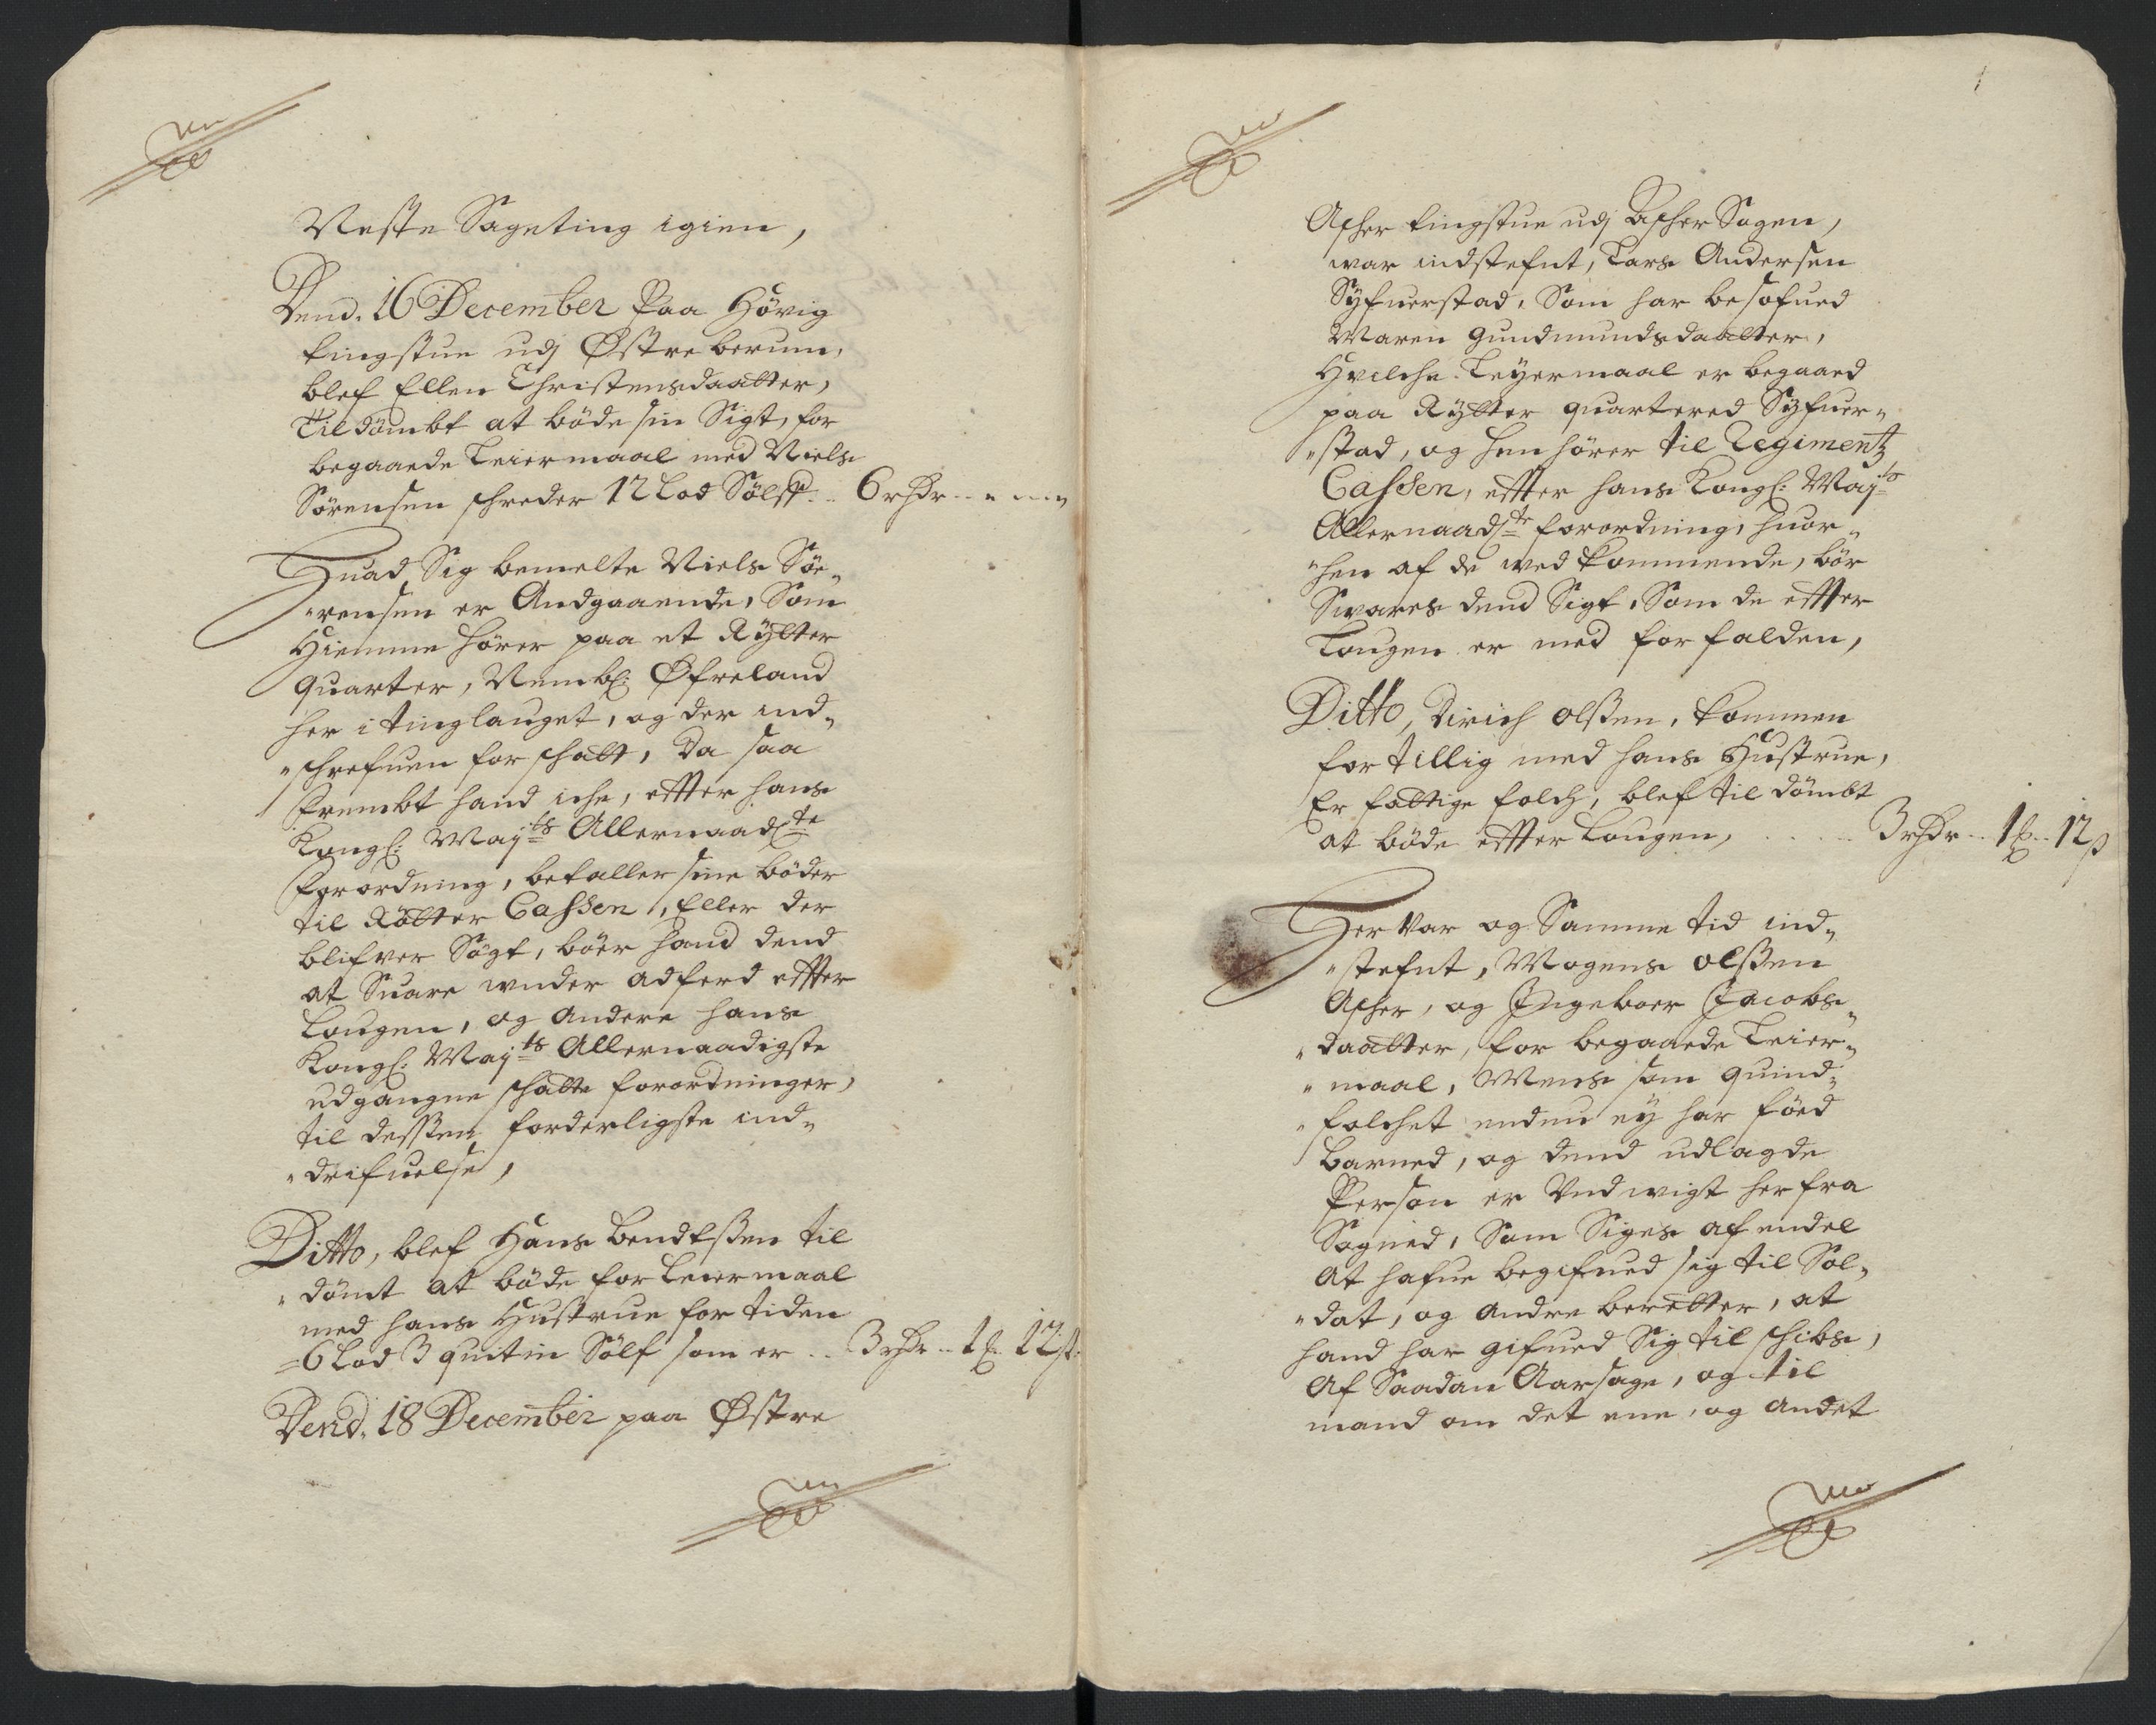 Neste Sageting igien,
Dend. 16 December Paa Hövig
tingstue udj Østre berum,
blef Ellen Christensdaatter,
Til dömbt at böde sin Sigt, for
begaaede Leiermaal med Niels
Sörensen schreder 12 Lod Sölf 6 rhdr
Huad Sig bemelte Niels Sör„
„rensen er Andgaaende, Som
Hiemme hörer paa et Rÿtter
quarter, Nembl: Øfreland
her i tinglauget, og der ind„
„schrefuen for schatt, Da saa
frembt hand iche, etter hans
Kongl: Maÿts Allernaadste
forordning, betaller sine böder
til Rötter Cassen, Eller der
blifver Sögt, böer hand dend
at Suare under adferd etter
Lougen, og andere hans
Kongl: Maÿts Allernaadigste
udgangne schatte forordninger,
til dessen forderligste ind„
„drifuelse,
Ditto, blef Hans bendtssen til
„dömt at böde for Leiermaal
med hans Hustrue for tiden
=6 Lod 3 quitin Sölf som er 3 rhdr 1 ℔ 12 ß
Dend. 18 December paa Østre
Ascher tingstue udj Ascher Sogen,
war indstefnt, Lars Andersen
Syfuerstad, Som har besofued
Maren Gundmundsdaatter,
Hvilche Leÿermaal er begaaed
paa Rÿtter quartered Syfuer„
„stad, og hen hörer til Regimentz
Cassen, etter hans Kongl: Maÿts
Allernaadste forordning, huor„
„hen af de wed kommende, bör
Swares dend Sigt, Som de etter
Lougen er med forfalden,
Ditto, Dirich olssen, kommen
for tillig med hans Hustrue,
Er fattige folch, blef til dömbt
at böde etter Lougen, 3 rhdr 1 ℔ 12 ß
Her var og Samme tid ind„
„stefnt, Mogens olssen
Ascher, og Ingeboer Jacobs„
„daatter, for begaaede Leier„
„maal, Mens som quind„
„folchet endnu eÿ har föed
barned, og dend udlagde
Person er Undwigt her fra
Sogned, Som Siges af endel
at hafue begifued sig til Sol„
„dat, og andre beretter, at
hand har gifued Sig til schibs,
Af Saadan Aarsage, og til
mand om det ene, og andet